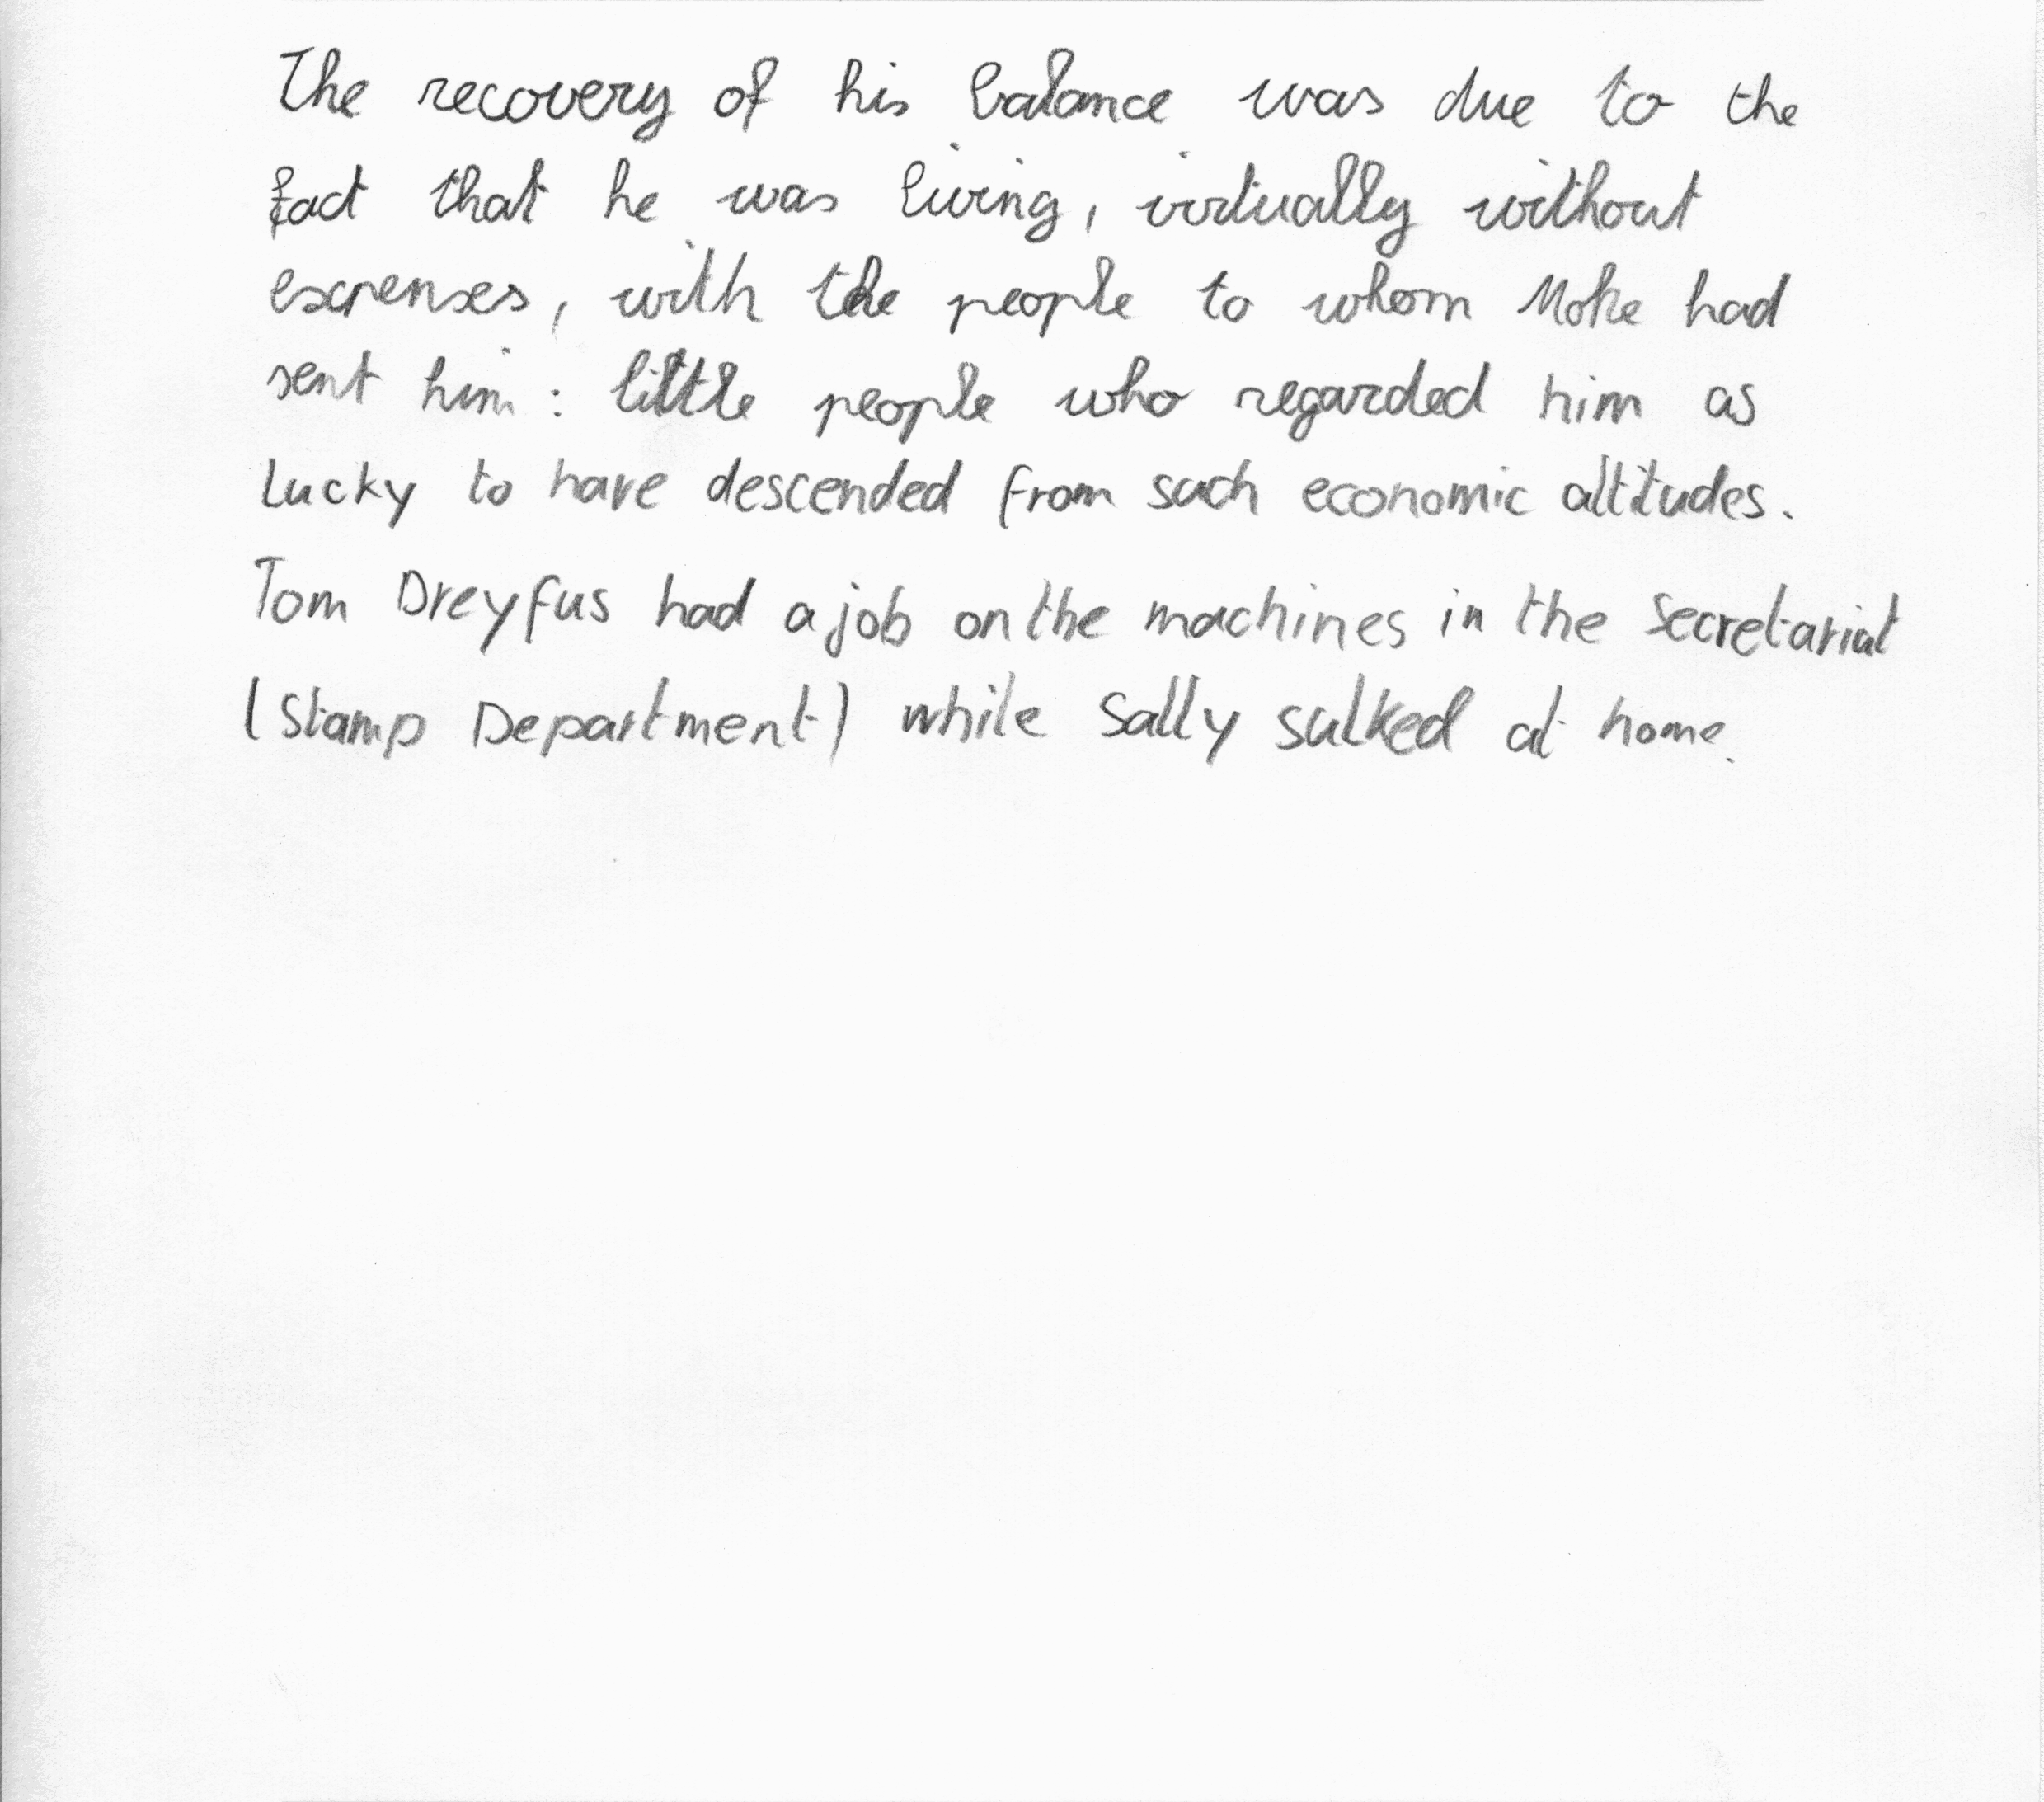 The recovery of his balance was due to the
fact that he was living, virtually without
expenses, with the people to whom Moke had
sent him : little people who regarded him as
lucky to have descended from such economic altitudes.
Tom Dreyfus had a job on the machines in the Secretariat
(Stamp Department) while Sally sulked at home.